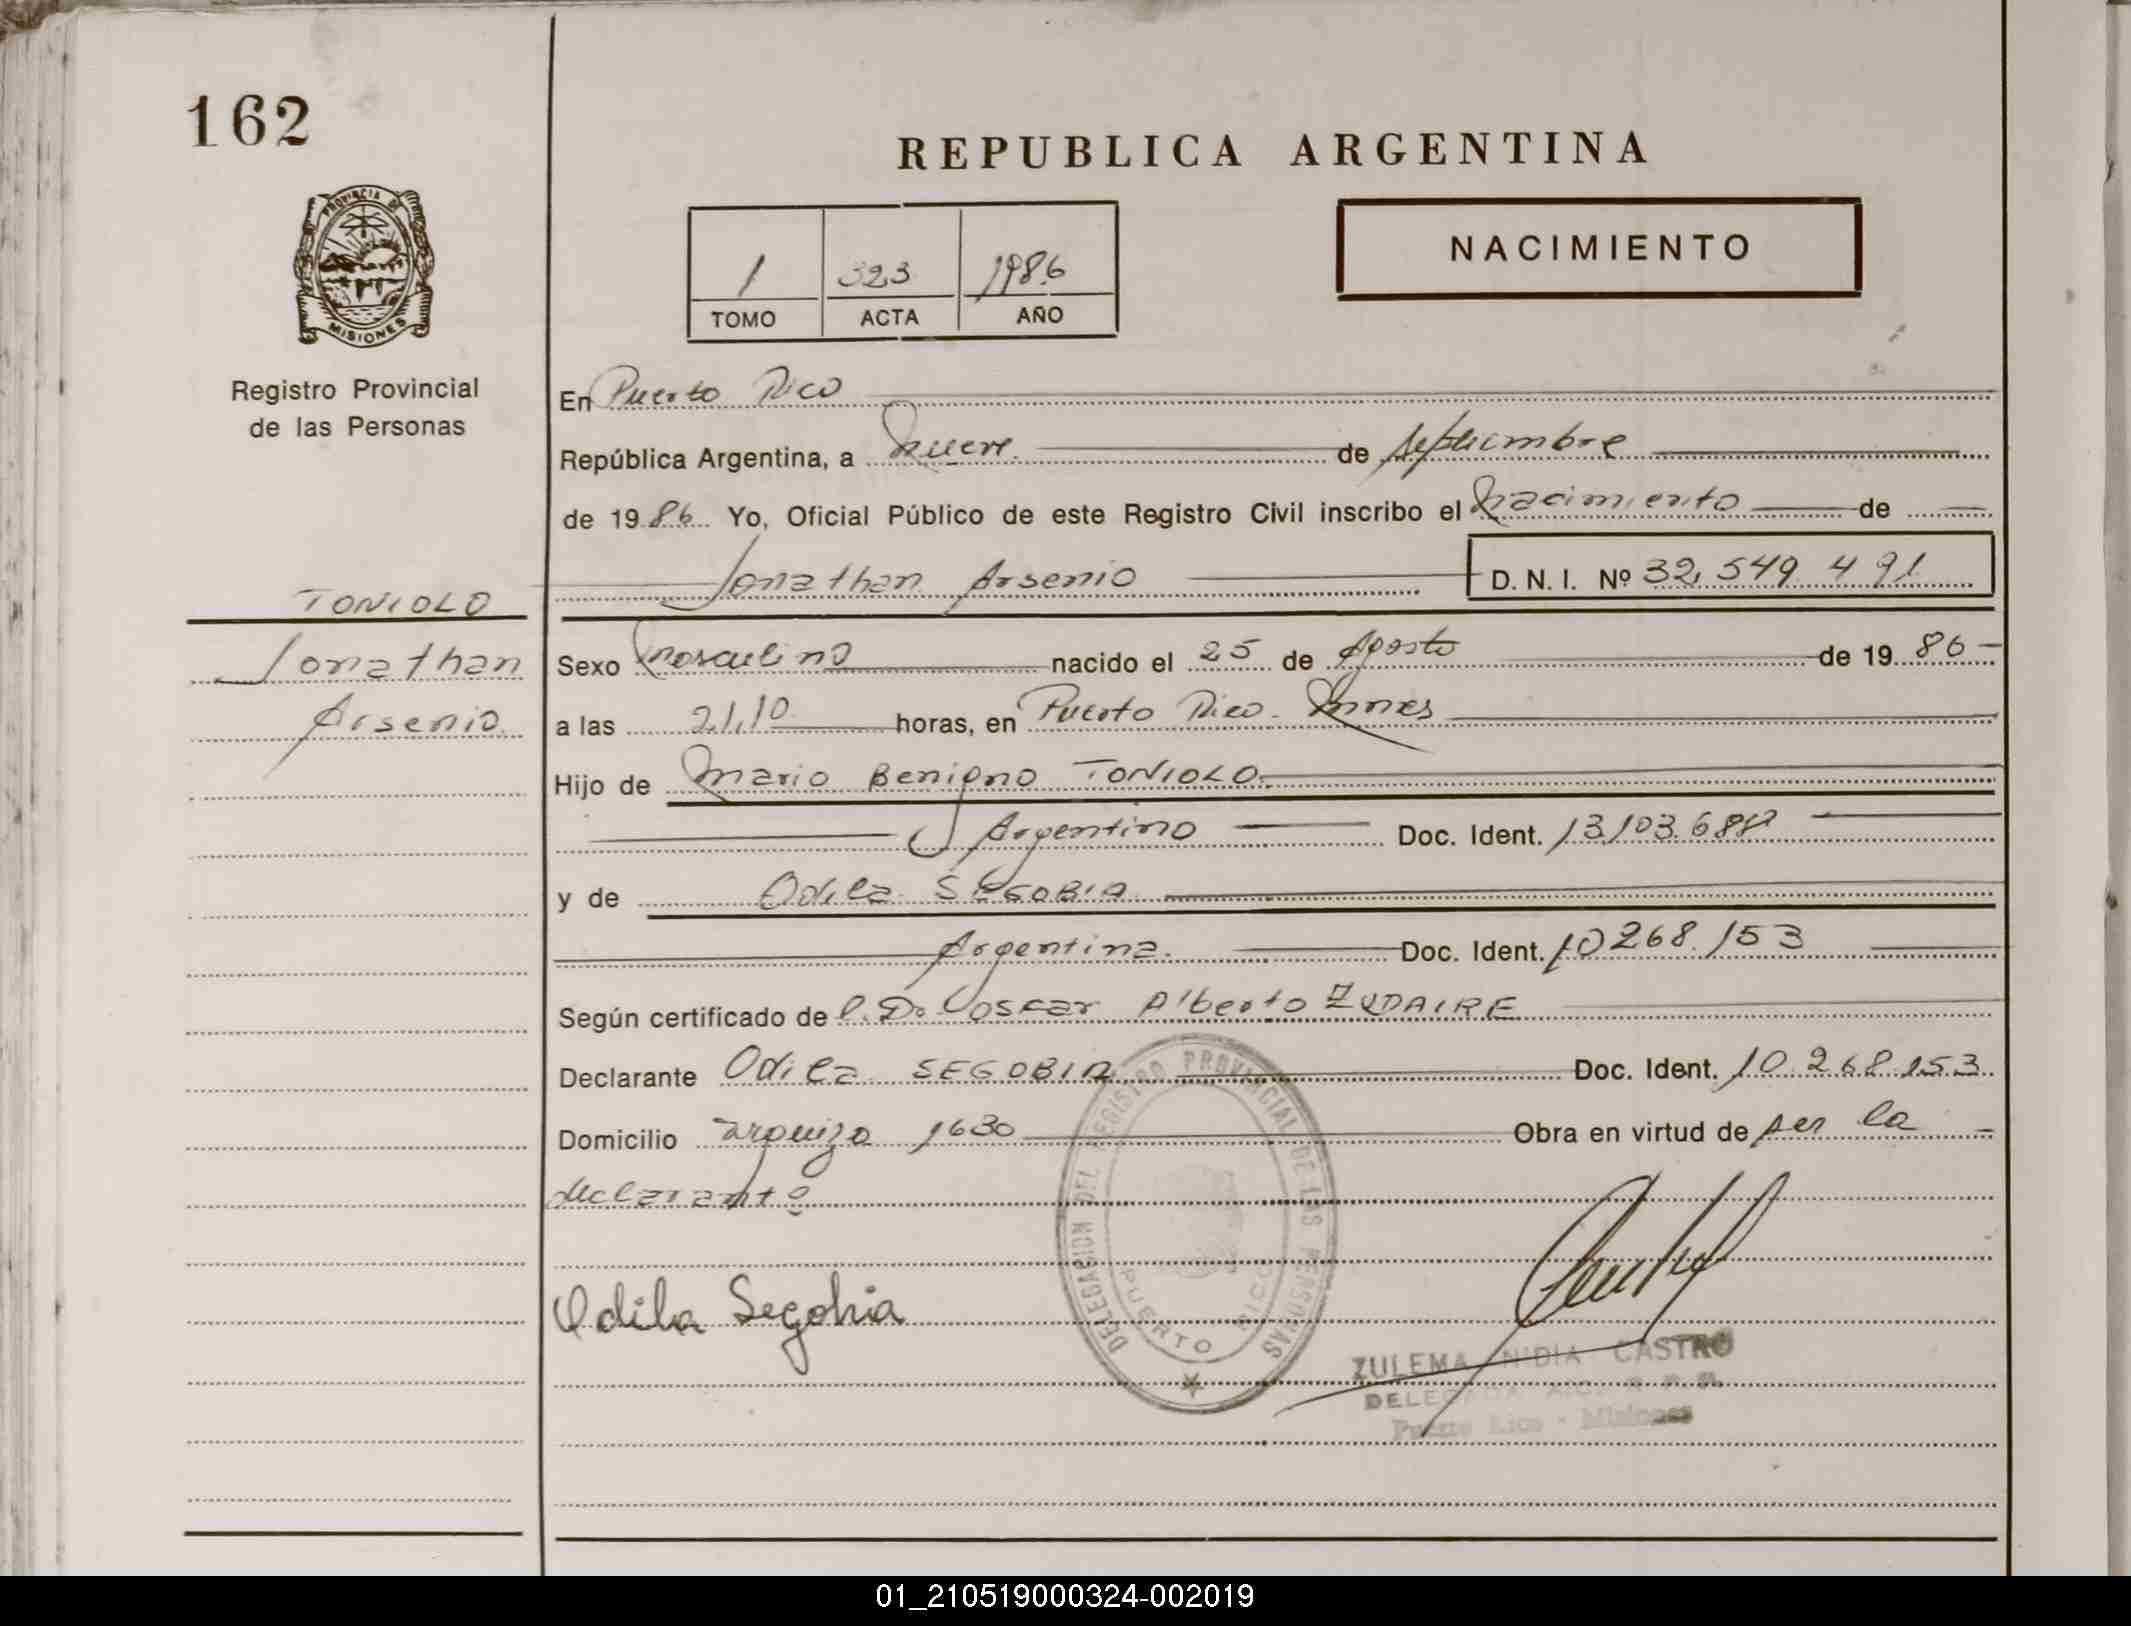 162
PROVINCIA DE
MISIONES
Registro Provincial
de las Personas
REPUBLICA ARGENTINA
1 323 1986
TOMO ACTA AÑO
NACIMIENTO
En Puerto Rico
República Argentina, a nueve de septiembre
de 1986 Yo, Oficial Público de este Registro Civil inscribo el nacimiento de
Jonathan Arsenio D. N. I. Nº 32.549 491
TONIOLO
Jonathan
Arsenio
Sexo masculino nacido el 25 de Agosto de 1986
a las 21,10 horas, en Puerto Rico - Mnes
Hijo de Mario Benigno TONIOLO.
Argentino Doc. Ident. 13.103.688
y de Odila SEGOBIA
Argentina. Doc. Ident. 10 268.153
Según certificado de l. Dr. Oscar Alberto ZUDAIRE
Declarante Odila SEGOBIA Doc. Ident. 10.268.153
Domicilio urquiza 1630 Obra en virtud de ser la
declarante
Odila Segobia
DELEGACION DEL REGISTRO PROVINCIAL DE LAS PERSONAS
PUERTO RICO
ZULEMA NIDIA CASTRO
Puerto Rico - Misiones
01_210519000324-002019